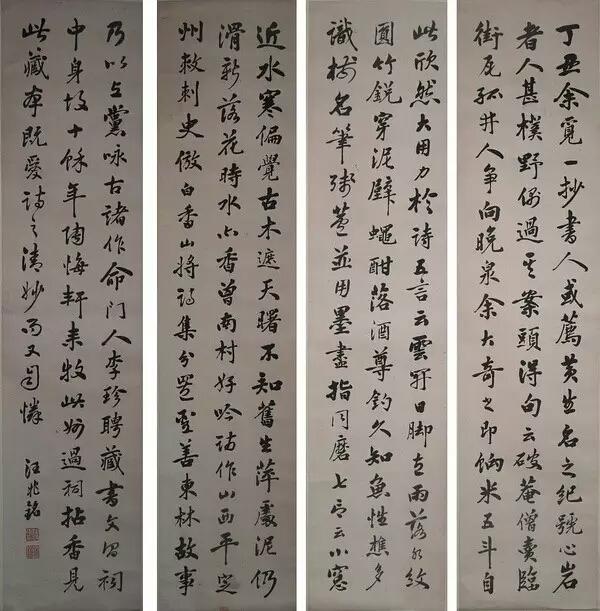 丁丑余覓一抄書人或薦黃生名之紀號心岩
者人甚樸野偶過其案頭得句云破菴僧賣臨
街瓦孤井人爭向晚泉余大奇之即餉米五斗自
此欣然大用力於詩五言云雲開日腳直雨落水紋
圓竹銳穿泥壁蠅酣落酒尊釣久知魚性樵多
識樹名筆殘蘆並用墨盡指同磨七言云小窓
近水寒偏覺古木遮天曙不知舊生萍處泥仍
滑新落花時水亦香曾南村好吟詩作山西平定
州刺史倣白香山將詩集分置聖善東林故事
乃以上黨咏古諸作命門人李珍聘藏書文昌祠
中身故十餘年陶悔軒来牧此州過祠拈香見
此藏本既愛詩之清妙而又自憐
汪兆銘